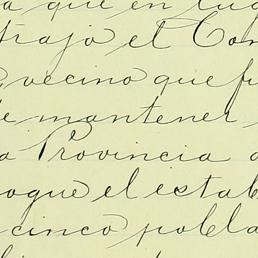 a que en lu
trajo el Con
vecino que fu
e mantener
a Provincia
oque el estab
cinco pobla